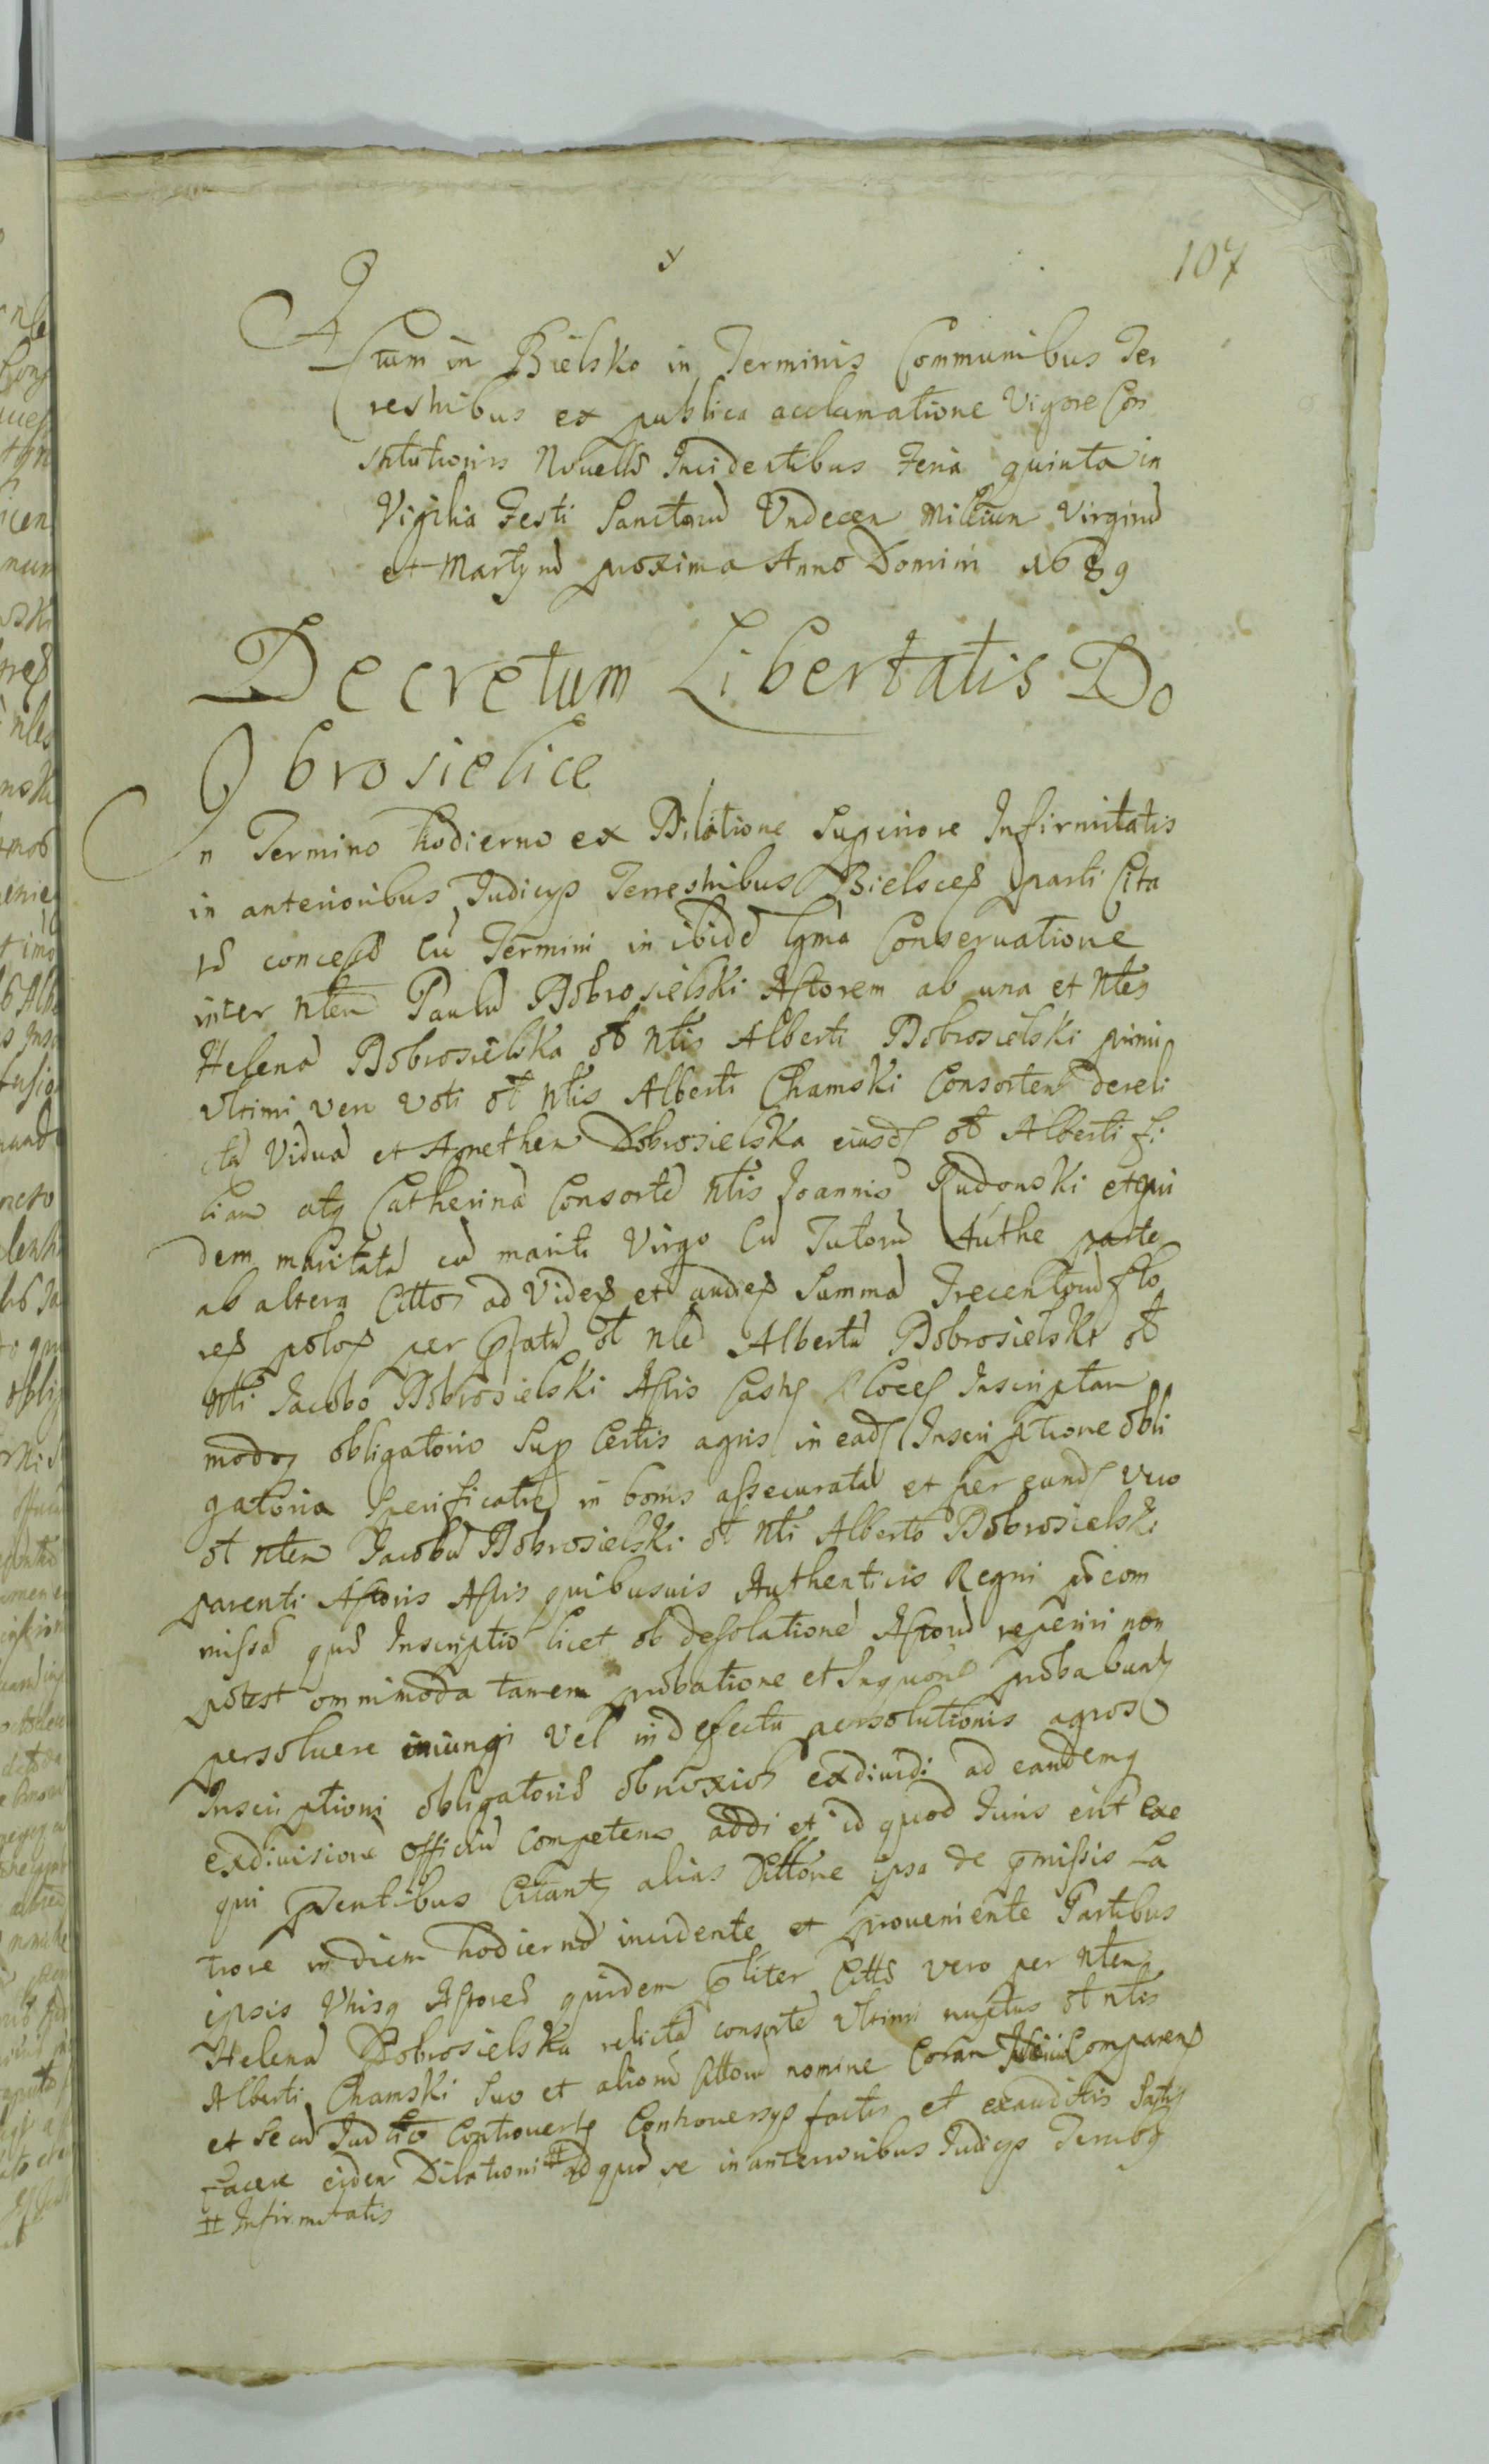 107
Actum in Bielsko in Terminis Communibus Ter
restribus ex publica acclamatione Vigore Con
stitutionis Novellae Incidentibus Feria quinta in
Vigilia Festi Sanctorũ Undecem Millium Virginũ
et Martyrũ proxima Anno Domini 1689
Decretum Libertatis Do
brosielice
In Termino hodierno ex Dilatione Superiore Infirmitatis
in anterioribus Judicys Terrestribus Bielscen parti Cita
tae concessae Cũ Termini in ibidẽ Conservatione
inter Nten Paulũ Dobrosielski Actorem ab una et Ntes
Helenã Dobrosielska ol Ntis Alberti Dobrosielski primi
Ultimi vero Voti ol Ntis Alberti Chamski Consortem dereli
ctã Viduã et Agnethen Dobrosielska eiusd ol Alberti fi
liam atq Catherinã Consortẽ Ntis Joannis Rudowski et qui
dem maritatã cũ mariti Virgo Cũ Tutorũ Authe parte
ab altera Cittos ad Viden et audien Summã Trecentorũ flo
ren polon per pfatũ ol Nlẽ Albertũ Dobrosielski ol
Nti Jacobo Dobrosielski Actis Castr Plocen Inscriptam
modoq obligatorio Sup Certis agris in ead Inscriptione obli
gatoria Specificatis in bonis assecuratã et per eund vero
ol Nten Jacobũ Dobrosielski ol Nti Alberto Dobrosielski
parenti Actoris Actis quibusvis Authenticis Regni
missã quae Inscriptio licet ob desolationẽ Actorũ reperiri non
potest omnimoda tamem probatione et probabunt
persoluere iniungi Vel in defectu persolutionis agros
Inscriptioni obligatoriae obnoxios exdiuidi ad eandemq
exdiuisionẽ Officiũ Competens addi et id quod Juris erit exe
qui pntibus Citant alias Cittõne ipsa de pmissis La
tiore in diem hodiernũ incidente et proueniente Partibus
ipsis Vtrisq Actorea quidem pliter Cittae vero per Nten
Helenã Dobrosielska relictã consortẽ Vltimi nuptus ol Ntis
Alberti Chamski Suo et aliorũ Cittorũ nomine Coram Comparen
et se cũ Judice Controuerten Controuersys factis et exauditis Satis
facere eidem Dilationi # ad quã se in anterioribus Judicys Terribq
# Infirmitatis